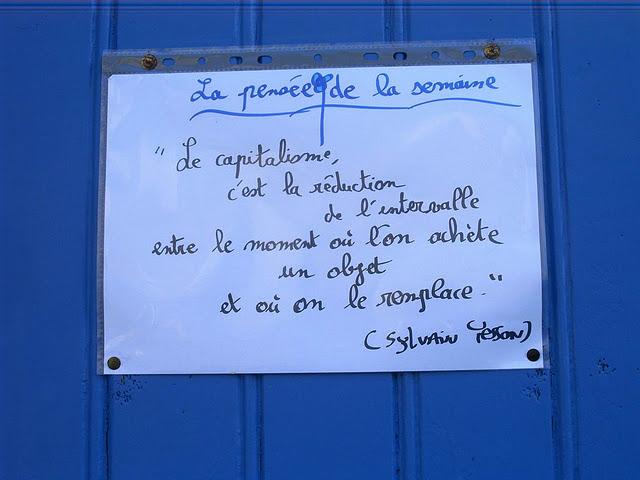 La pensée de la semaine
" Le capitalisme,
c'est la réduction
de l'intervalle
entre le moment où l'on achète
un objet
et où on le remplace. "
(Sylvain Tesson)